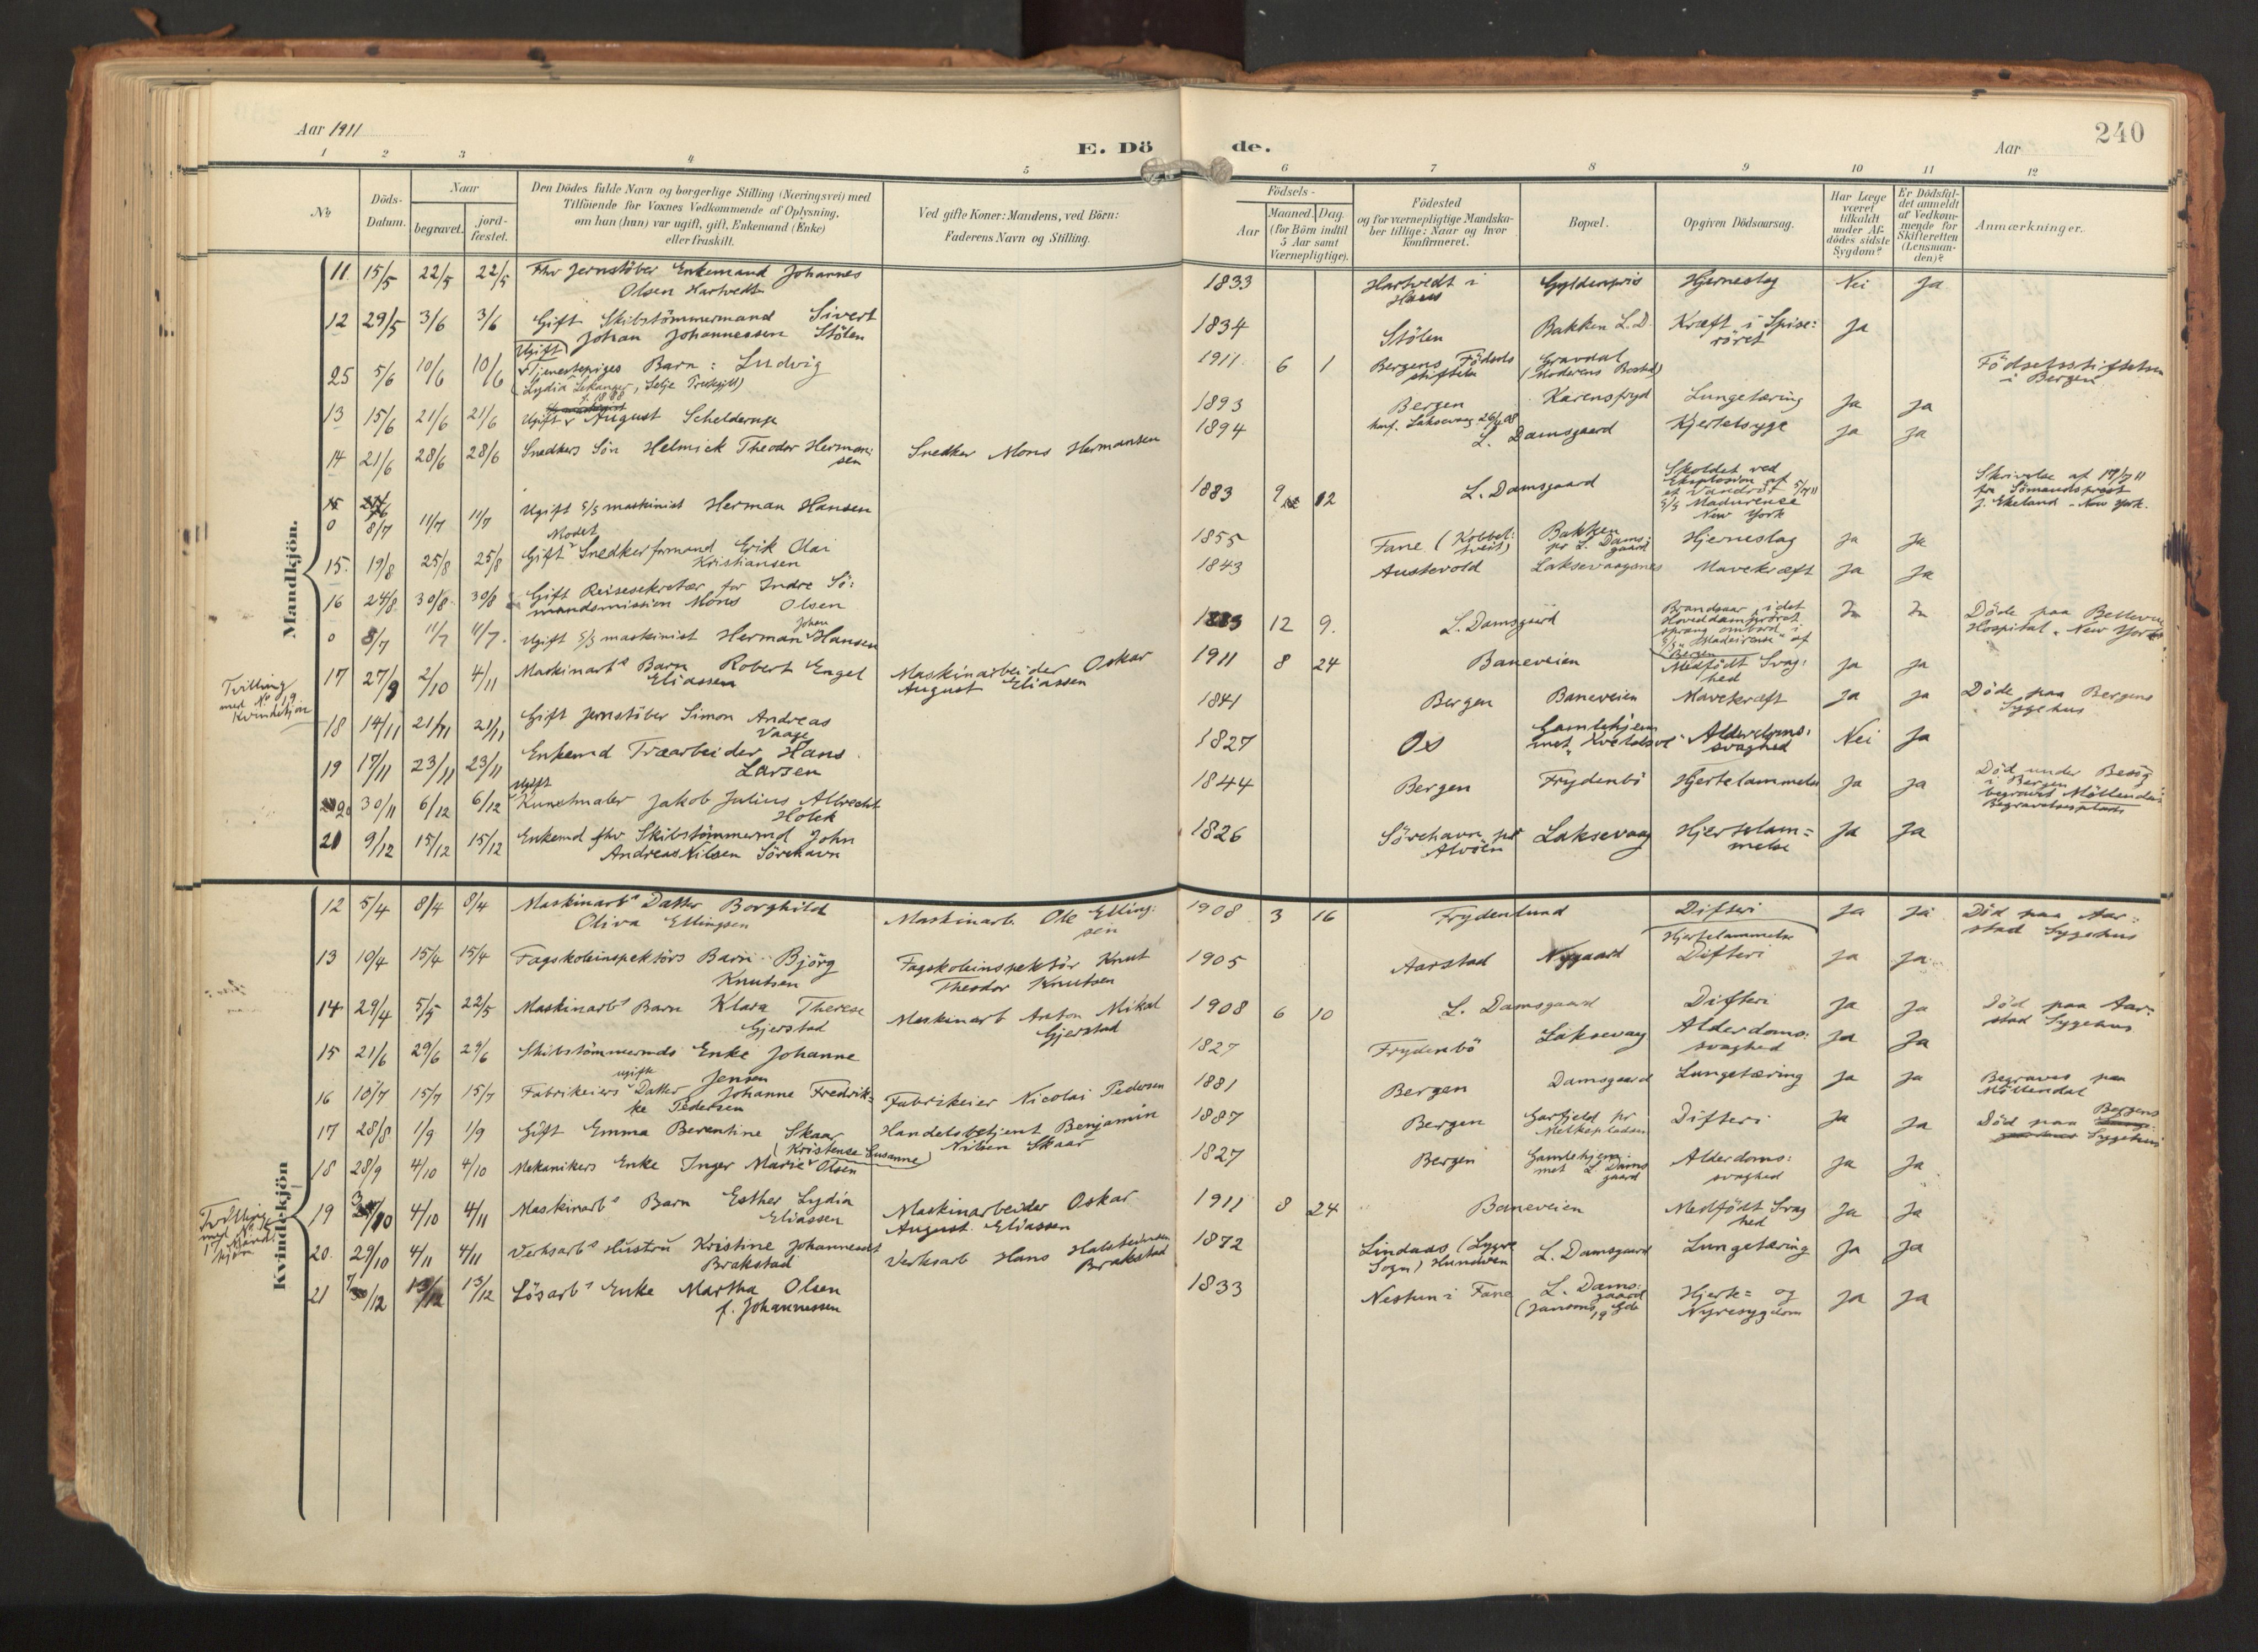 Aar 1911
E. Döde.
Aar
240
1 2 3 4 5 6 7 8 9 10 11 12
No
Döds-Datum.
Naar
begravet.
jord-fæstet.
Den Dödes fulde Navn og borgerlige Stilling (Næringsvei) med
Tilföiende for Voxnes Vedkommende af Oplysning,
om han (hun) var ugift, gift, Enkemand (Enke)
eller fraskilt.
Ved gifte Koner: Mandens, ved Börn:
Faderens Navn og Stilling.
Födsels-
Aar
Maaned.
Dag.
(for Börn indtil
5 Aar samt
Værnepligtige).
Födested
og for værnepligtige Mandska-
ber tillige: Naar og hvor
konfirmeret.
Bopæl.
Opgiven Dödsaarsag.
Har Læge
været
tilkaldt
under Af-
dödes sidste
Sygdom?
Er Dödsfal-
det anmeldt
af Vedkom-
mende for
Skifteretten
(Lensman-
den)?
Anmærkninger.
Mandkjön.
11 15/5 22/5 22/5 Fhv Jernstöber Enkemand Johannes
Olsen Hartvedt
1833 Hartvedt i
Haus
Gyldenpris Hjerneslag Nei Ja
12 29/5 3/6 3/6 Gift Skibstömmermand Sivert
Johan Johannessen Stölen
1834 Stölen Bakken L.D. Kræft i Spise:
röret
Ja
25 5/6 10/6 10/6 Ugift
Tjenestepiges Barn: Ludvig
(Lydia Lekanger, Selje Prestgjld)
f. 1888
1911 6 1 Bergens Födsels
stiftelse
Gravdal
(Moderens Bosted)
Födselsstiftelsen
i Bergen
13 15/6 21/6 21/6 Ugift August Schelderup
1893 Bergen
konf. Laksevaag 26/4 08
Karensfryd Lungetæring Ja Ja
14 21/6 28/6 28/6 Snedkers Sön Helmick Theodor Herman:
sen
Snedker Mons Hermansen
1894 L. Damsgaard Kjertelsyge Ja Ja
0 8/7 11/7 11/7 Ugift S/S maskinist Herman Hansen
1883 9 12 L. Damsgaard Skoldet ved
Eksplosion af
et Vandrör 5/7 11
S/S Madurense
New York
Skrivelse af 17/7 11
fra Sömandsprest
J. Ekeland - New York.
15. 19/8 25/8 25/8 Gift Snedkerformand Erik Olai
Kristiansen
1855 Fane (Kobbel:
tveit)
Bakken
pr L. Dams:
gaard
Hjerneslag Ja Ja
16 24/8 30/8 30/8 Gift Reisesekretær for Indre Sö:
mandsmission Mons Olsen
1843 Austevold Laksevaagsnes Mavekræft Ja Ja
0 8/7 11/7 11/7. Ugift S/S maskinist Herman Johan Hansen
1883 12 9. L. Damsgaard Brandsaar, idet
Hoveddamprøret
sprang ombord i
S/S Madeirense af
Bergen
Ja Ja Döde paa Bellevue
Hospital, New York
Tvilling
med No 19
Kvindekjön
17 27/9 2/10 4/11 Maskinarbs Barn Robert Engel
Eliassen
Maskinarbeider Oskar
August Eliassen
1911 8 24 Baneveien Medfödt Svag:
hed
Ja Ja
18 14/11 21/11 21/11 Gift Jernstöber Simon Andreas
Vaage
1841 Bergen Baneveien Mavekræft Ja Ja Döde paa Bergens
Sygehus
19 17/11 23/11 23/11 Enkemd Træarbeider Hans
Larsen
1827 Os Gamlehjem
met, Alderdoms:
svaghed
Nei Ja
20 30/11 6/12 6/12 Ugift
Kunstmaler Jakob Julius Albrecht
Holck
1844 Bergen Frydenbö Hjertelammelse Ja Ja Död under Besög
i Bergen
begravet Möllendals
Begravelsesplads
21 9/12 15/12 15/12 Enkemd fhv Skibstömmermd John
Andreas Nilsen Sörehavn
1826 Sörehavn pr
Alvöen
Laksevaag Hjertelam=
melse
Ja Ja
Kvindekjön
12 5/4 8/4 8/4 Maskinarbs Datter Borghild
Oliva Ellingsen
Maskinarb. Ole Elling:
sen
1908 3 16 Frydenlund Difteri
Hjertelammelse
Ja Ja Död paa Aar:
stad Sygehus
13 10/4 15/4 15/4 Fagskoleinspektörs Barn Björg
Knutsen
Fagskoleinspektör Knut
Theodor Knutsen
1905 Aarstad Nygaard Difteri Ja Ja
14 29/4 5/5 22/5 Maskinarbs Barn Klara Therese
Gjerstad
Maskinarb Anton Mikal
Gjerstad
1908 6 10 L. Damsgaard Difteri Ja Ja Död paa Aar:
stad Sygehus
15 21/6 29/6 29/6 Skibstömmermds Enke Johanne
Jensen
1827 Frydenbö Laksevaag Alderdoms:
svaghed
Ja Ja
16 10/7 15/7 15/7 Fabrikeiers ugifte Datter Johanne Fredrik=
ke Pedersen
Fabrikeier Nicolai Pedersen
1881 Bergen Damsgaard Lungetæring Ja Ja Begraves paa
Möllendal
17 28/8 1/9 1/9 Gift Emma Berentine Skaar
Handelsbetjent Benjamin
Nilsen Skaar
1887 Bergen Garfield pr
Melkepladsen
Difteri Ja Ja Död paa Bergens
Sygehus
18 28/9 4/10 4/10 Mekanikers Enke Inger Marie (Kristense Susanne) Olsen
1827 Bergen Gamlehjem:
met L. Dams
gaard
Alderdoms:
svaghed
Ja Ja
Tvilling
med No
17 Mand:
kjön
19 3/10 4/10 4/11 Maskinarbs Barn Esther Lydia
Eliassen
Maskinarbeider Oskar
August Eliassen
1911 8 24 Baneveien Medfödt Svag
hed
Ja Ja
20. 29/10 4/11 4/11 Verksarbs Hustru Kristine Johannesdt
Brakstad
Verksarb Hans Halstensen
Brakstad
1872 Lindaas (Lygre
Sogn) Hundven
L. Damsgaard Lungetæring Ja Ja
21 7/12 13/12 13/12 Lösarbs Enke Martha Olsen
f. Johannessen
1833 Nestun i Fane L. Dams:
gaard
Hjerte= og
Nyresygdom
Ja Ja